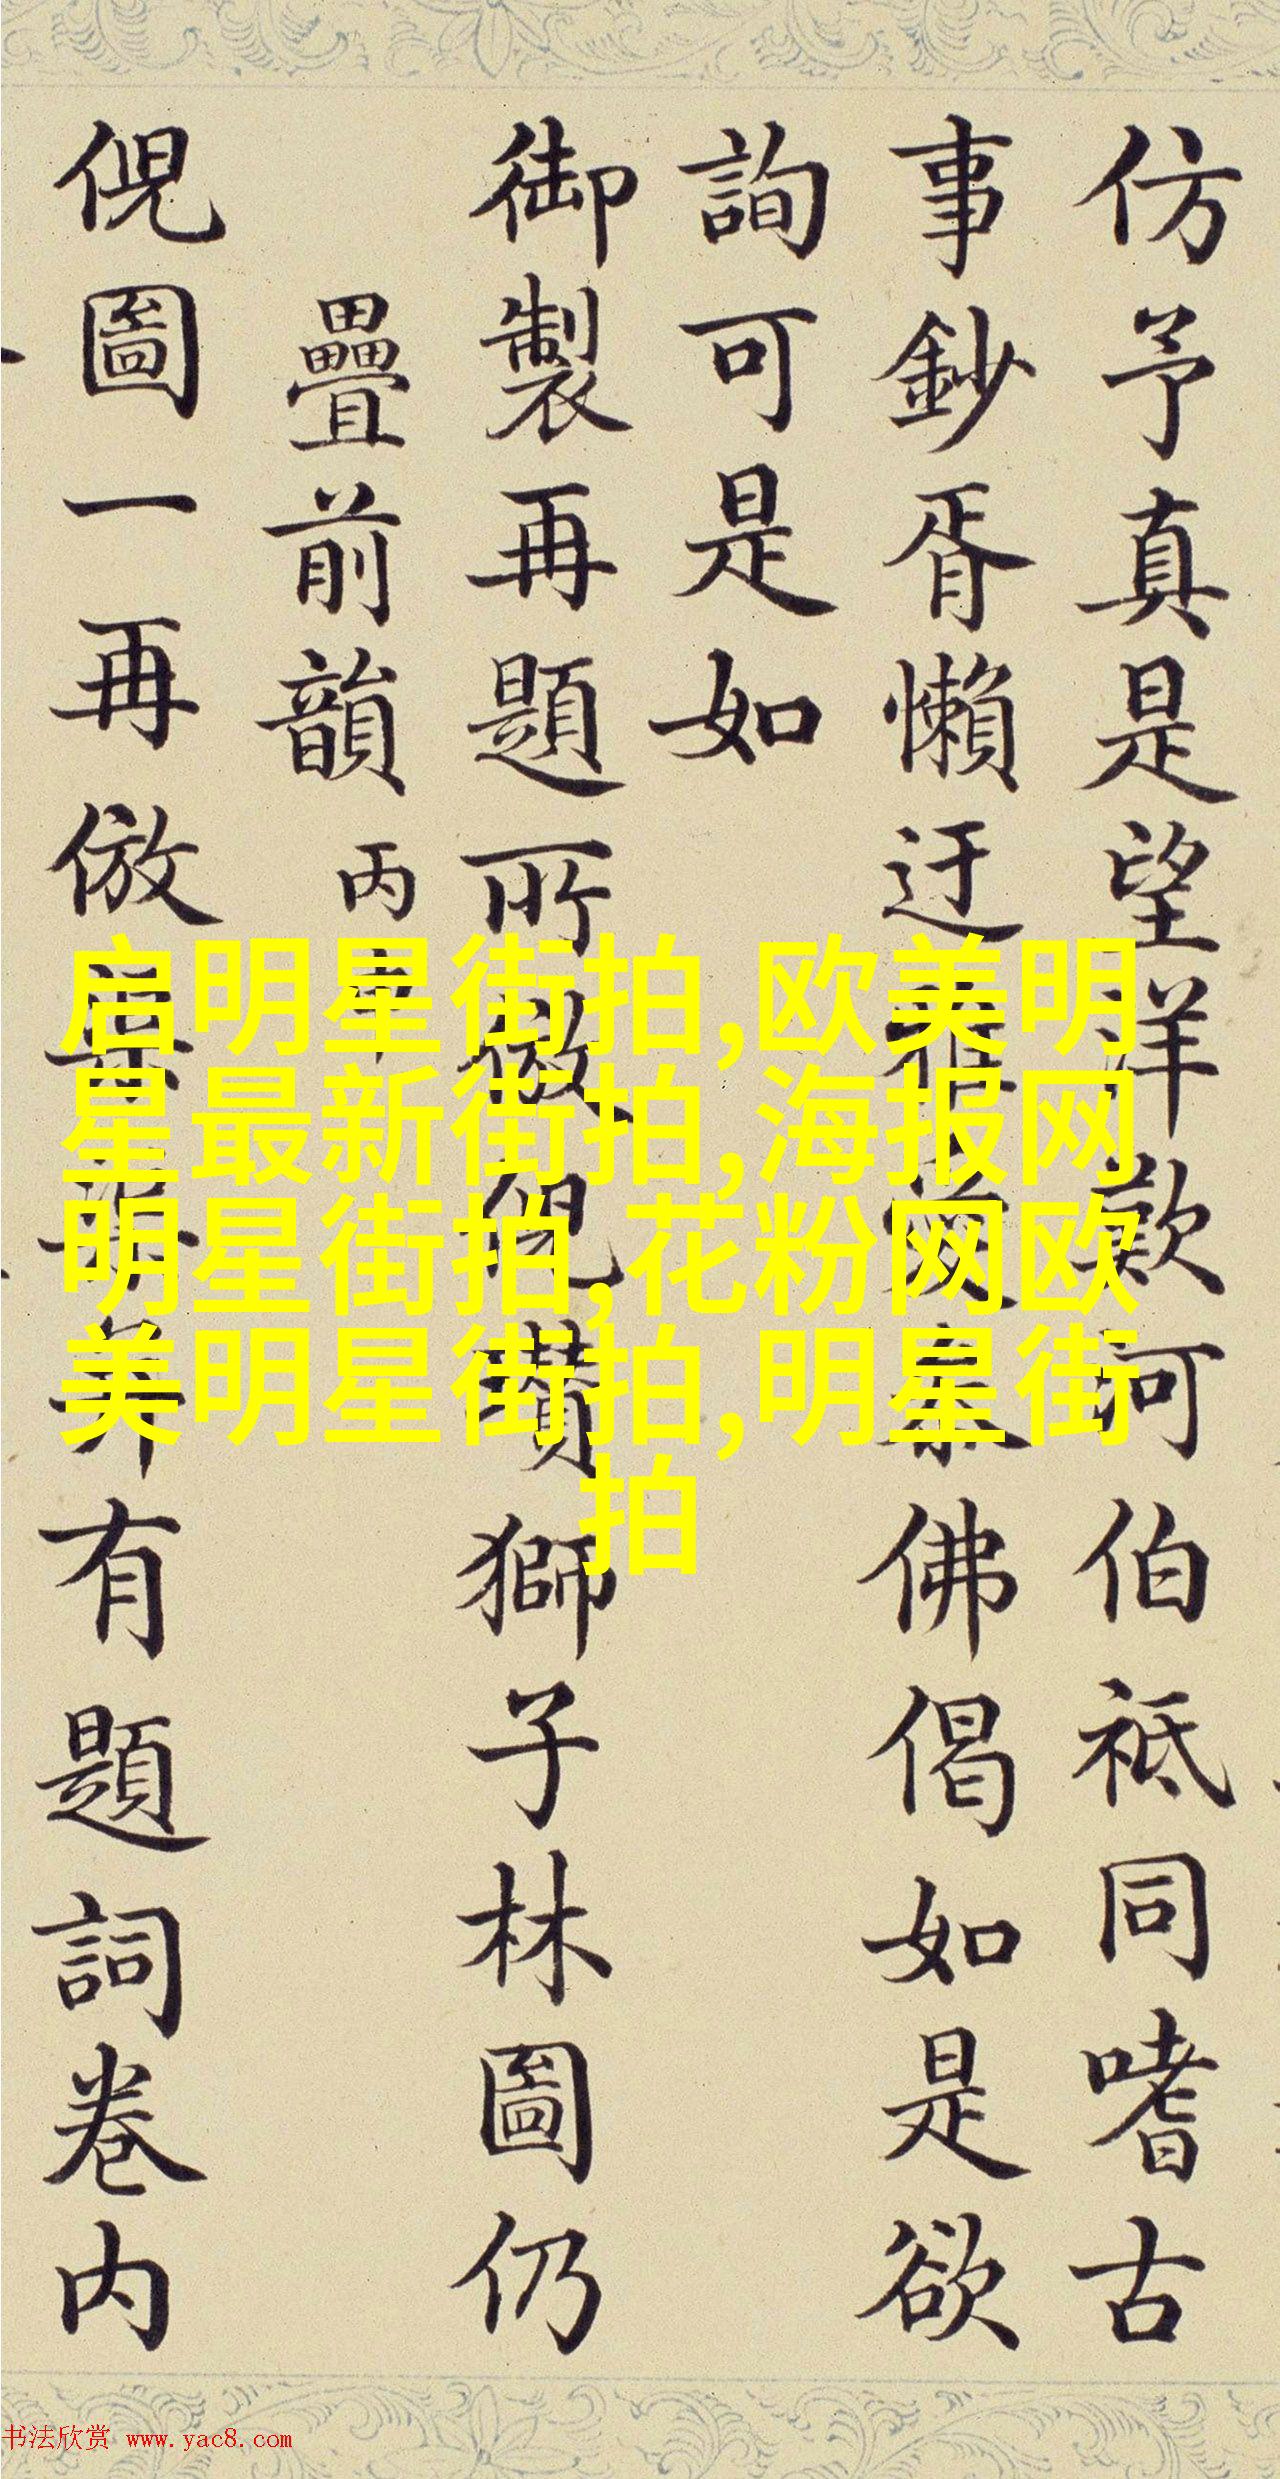 仿予真是望洋歎河伯祗同嗜古
事鈔胥懶迂雅愛參佛偈如是欲
詢可是如
御製再題所倣倪瓚獅子林圖仍
疊前韻 丙申
倪圖一再倣舉弆有題詞卷内
启明星街拍,欧美明
星最新街拍,海报网
明星街拍,花粉网欧
美明星街拍,明星街
拍
书法欣赏 www.yac8.com